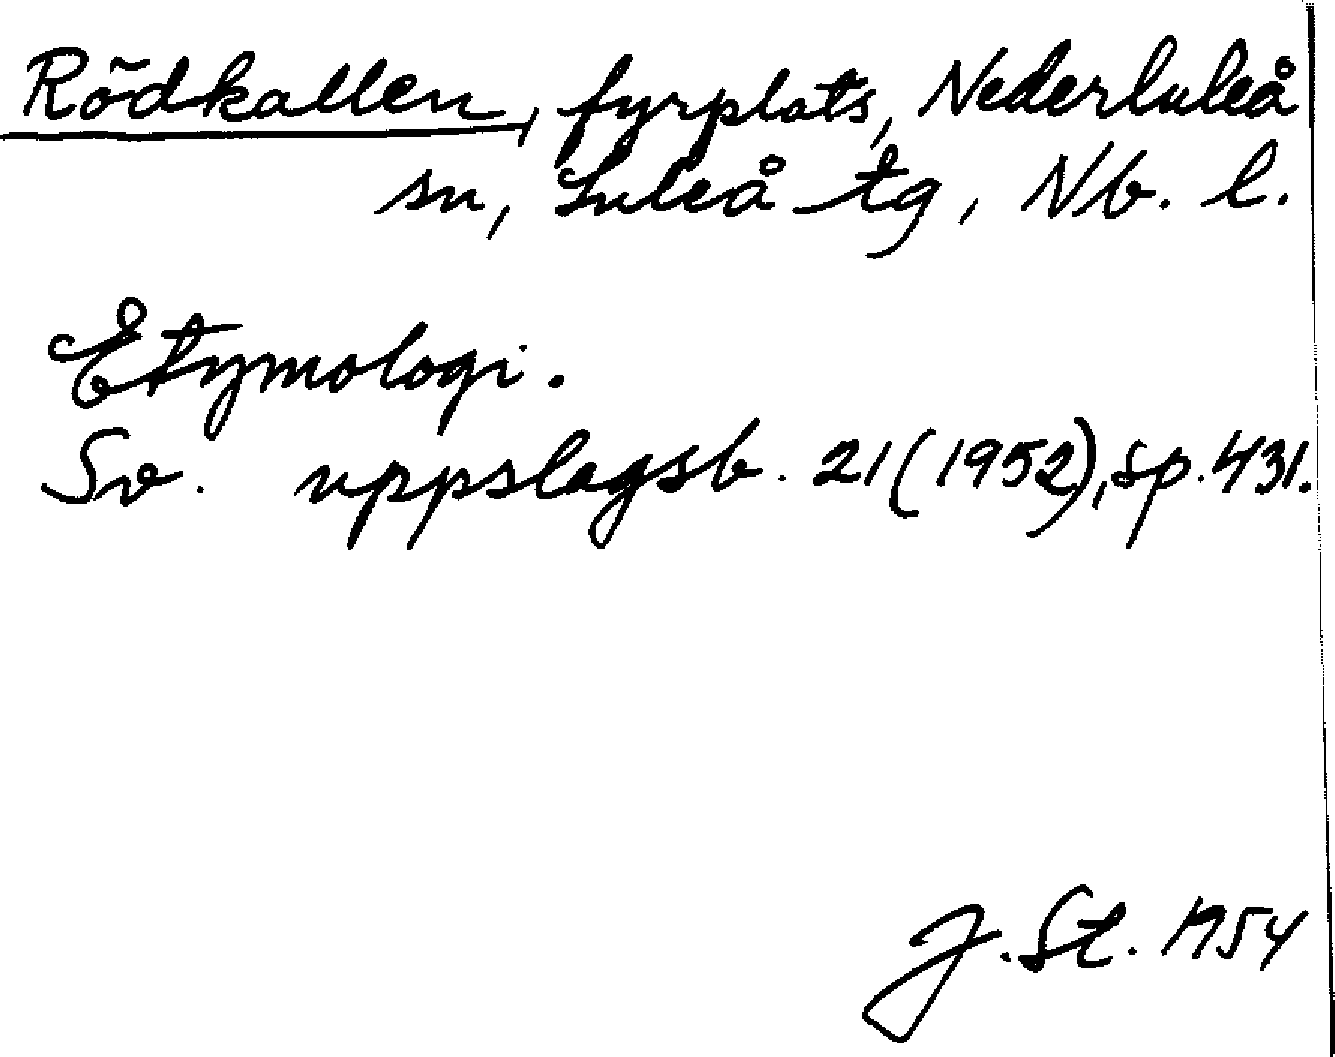 Rödkallen, fyrplats, Nederluleå
sn, Luleå tg, Nb. l.
Etymologi.
Sv. uppslagsb. 21 (1952), sp. 431.
J. St. 1954